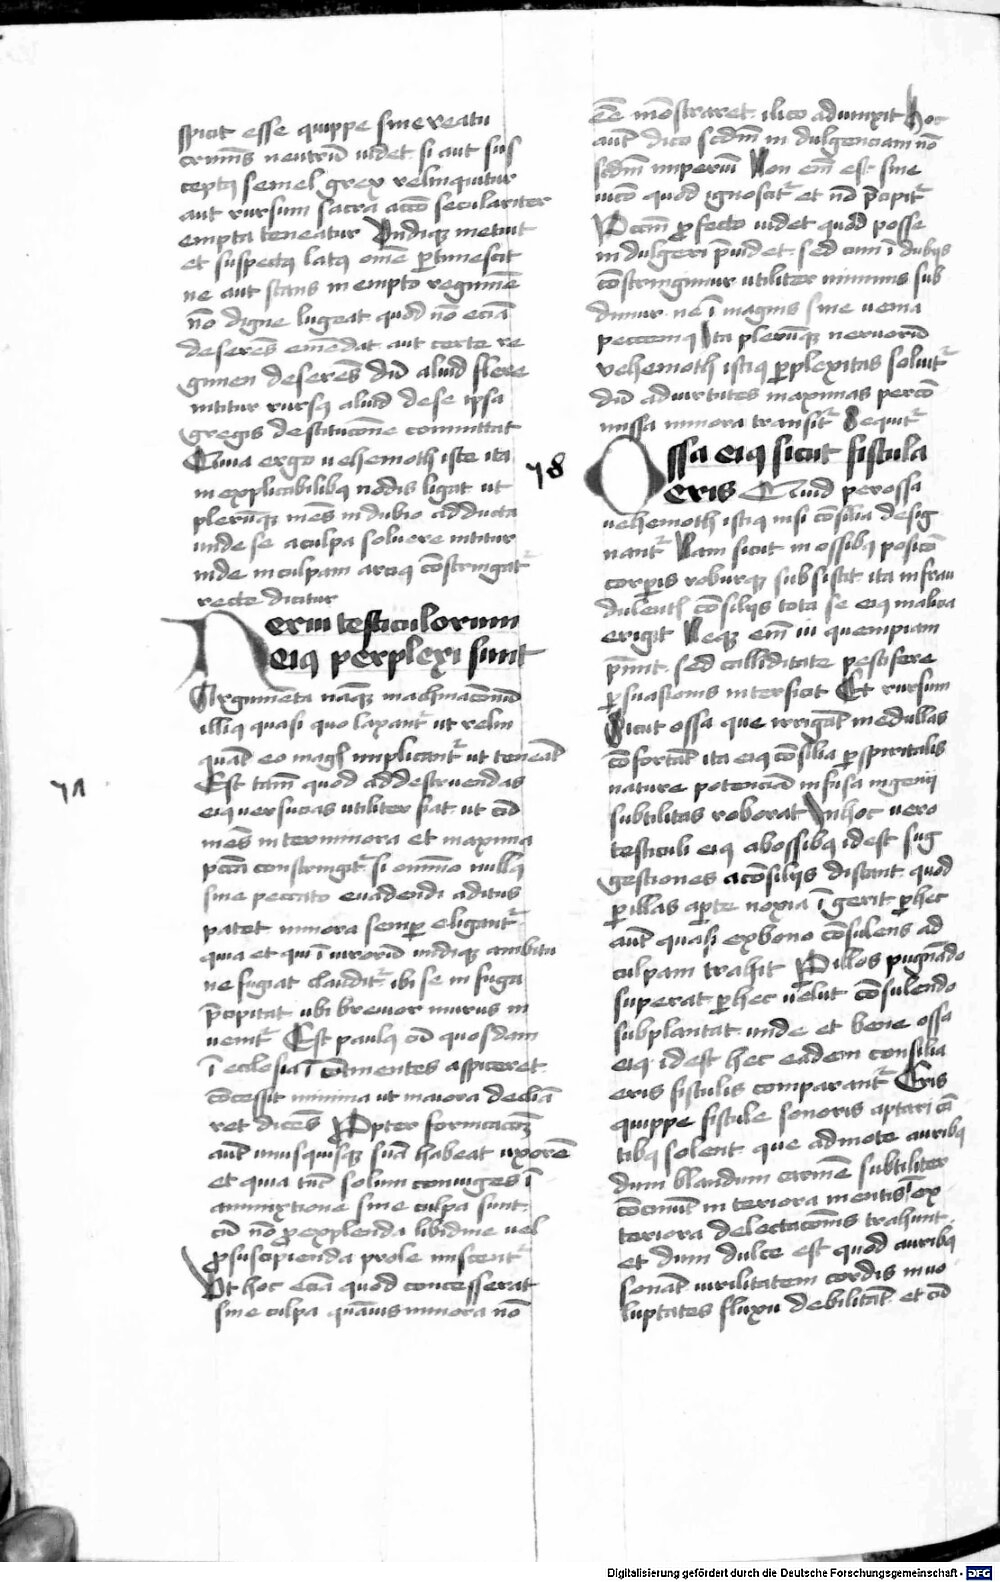 spicit esse quippe sine reatu
criminis neutrū videt si aut sus
ceptꝰ semel grex relinquitur
aut rursum sacra accō seculariter
empta teneatur Undiqꝫ metuit
et suspectꝰ latꝰ om̄e ꝑtimescit
ne aut stans in empto regimine
nō digne lugeat quod nō eciā
deserēs emēdat aut certe re
gimen deserēs dū aliud flere
nititur rursꝰ aliud de se ipsa
gregis destitucōne committat
Quia ergo vehemoth iste ita
inexplicabilibꝰ nodis ligat ut
plerūqꝫ mēs in dubio adducta
unde se a culpa soluere nititur
inde in culpam arciꝰ cōstringat᷑
recte dicitur
Nerui testiculorum
eiꝰ perplexi sunt
Argumēta nāqꝫ machinacōnū
illiꝰ quasi quo laxant᷑ ut relin
quāt eo magis implicant᷑ ut teneāt
Est tam̄ quod ad destruendas
eiꝰ versucias utiliter fiat ut cū
mēs inter minora et maxima
pccāta constringit᷑ si om̄ino nullꝰ
sine peccato euadendi aditus
patet minora semꝑ eligant᷑
quia et qui ī murorū undiqꝫ ambitu
ne fugiat claudit᷑ ibi se in fuga
p̄cipitat ubi breuior murus in
uenit᷑ Est paulꝰ cū quosdam
ī ecclesia īcōtinentes aspiceret
cōcessit minima ut maiora decliā
ret dicēs Propter fornicacōeꝫ
aut̄ unusquisqꝫ suā habeat uxorē
et quia tūc solum coniuges ī
ammixtione sine culpa sunt
cū nō ꝓ explenda libidine uel
ꝓ suscipienda prole miscent᷑
Ut hoc eciā quod concesserat
sine culpa quāuis minora nō
71
ēē mōstraret ilico adiunxit Hoc
aut̄ dico scdm̄ indulgenciam nō
scdm̄ imperiū Non em̄ est sine
uicio quod ignoscit᷑ et nō p̄cipit᷑
Pccm̄ ꝓfecto uidet quod posse
indulgeri p̄uidet sed cum ī dubijs
cōstringimur utiliter minimis sub
dimur ne ī magnis sine uenia
peccemꝰ Ita plerūqꝫ neruorū
vehemoth istiꝰ ꝑplexitas soluit᷑
dū ad uirtutes maximas per cō
missa minora transit᷑ Sequit᷑
78
Ossa eiꝰ sicut fistula
eris Quid per ossa
vehemoth istiꝰ nisi cōsilia desig
nant᷑ Nam sicut in ossibꝰ posicō
corꝑis roburqꝫ subsistit ita in frau
dulentis cōsilijs tota se eiꝰ malicia
erigit Neqꝫ em̄ ui quempiam
p̄mit sed calliditate pestifere
ꝑsuasionis interficit Et rursum
Sicut ossa que irrigāt medullas
cōfortāt ita eiꝰ cōsilia ꝑ spiritalis
nature potenciā infusa ingenij
subtilitas roborat In hoc vero
testiculi eiꝰ ab ossibꝰ id est sug
gestiones a cōsilijs distant quod
ꝑ illas aꝑte noxia īgerit ꝑ hec
aut̄ quasi ex bono cōsulens ad
culpam trahit Per illos pugnādo
superat ꝑ hec uelut cōsulendo
subplantat unde et bene ossa
eiꝰ id est hec eadem consilia
eris fistulis comparant᷑ Eris
quippe fistule sonoris aptari cā
tibꝰ solent que admote auribꝰ
dum blandum carmē subtiliter
cōcinūt interiora mentis ī ex
teriora delectacōnis trahunt
et dum dulce est quod auribꝰ
sonāt uirilitatem cordis in uo
luptates fluxu debilitāt et cū
Digitalisierung gefördert durch die Deutsche Forschungsgemeinschaft - DFG